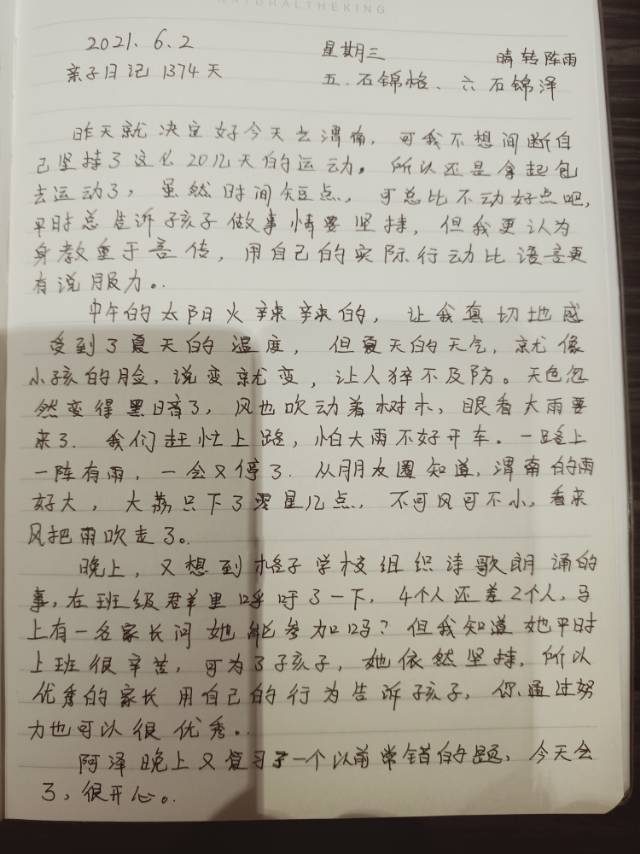 NATURALTHEKING
2021.6.2 星期三 晴转阵雨
亲子日记1374天 五.石锦格、六石锦泽
昨天就决定好今天去渭南,可我不想间断自
己坚持了这么20几天的运动。所以还是拿起包
去运动了,虽然时间短点,可总比不动好点吧,
平时总告诉孩子做事情要坚持,但我更认为
身教重于言传,用自己的实际行动比语言更
有说服力。
中午的太阳火辣辣的,让我真切地感
受到了夏天的温度,但夏天的天气,就像
小孩的脸,说变就变,让人猝不及防。天色忽
然变得黑暗了,风也吹动着树木,眼看大雨要
来了.我们赶忙上路,怕大雨不好开车。一路上
一阵有雨,一会又停了.从朋友圈知道,渭南的雨
好大,大荔只下了零星几点,不可风可不小,看来
风把雨吹走了。
晚上,又想到格子学校组织诗歌朗诵的
事,在班级群里呼吁了一下,4个人还差2个人,马
上有一名家长问她能参加吗?但我知道她平时
上班很辛苦,可为了子孩子,她依然坚持,所以
优秀的家长用自己的行为告诉孩子,你通过努
力也可以很优秀。
阿泽晚上又复习了一个以前常错的题,今天会
了,很开心。